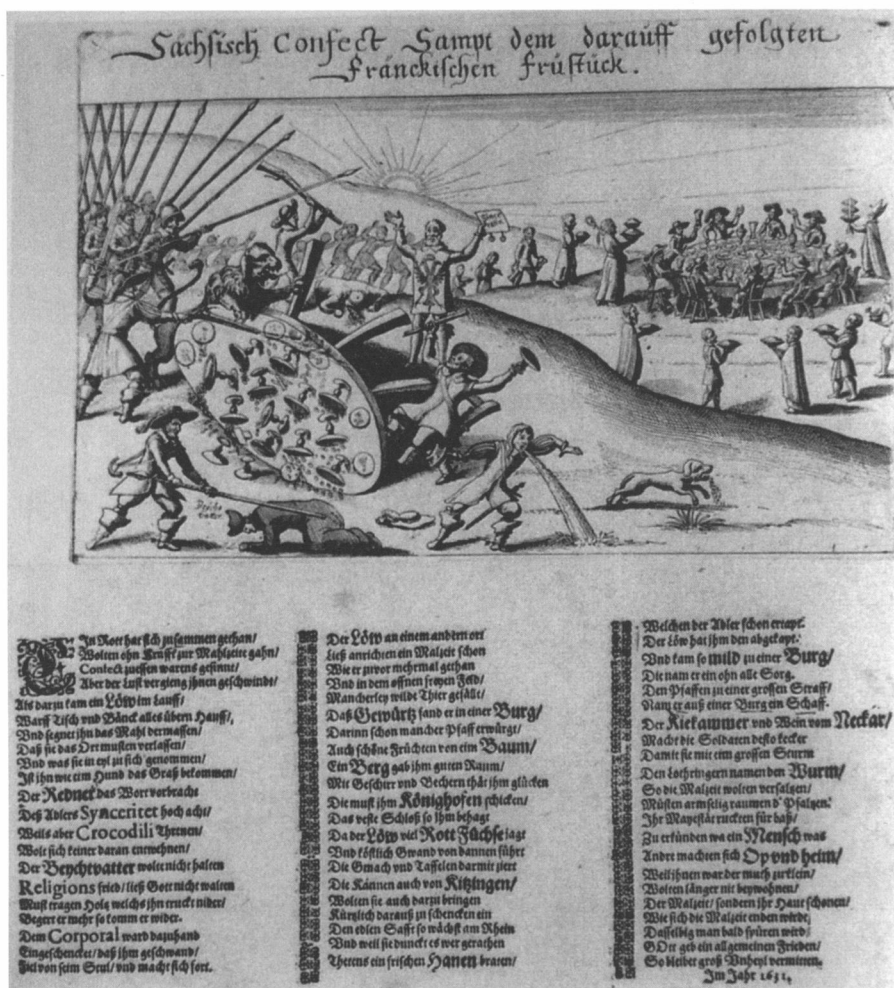 Sächsisch Confect Sampt dem darauff gefolgten
Fränckischen Früstück.
EIn Rott hat sich zusammen gethan/
Wolten ohn Krafft zur Mahlzeit gahn/
Confect zuessen warens gesinnt/
Aber der Lust vergieng jhnen geschwindt/
Als darzu kam ein Löw im Lauff/
Warff Tisch vnd Bänck alles übern Hauff/
Vnd segnet jhn das Mahl dermassen/
Daß sie das Ort musten verlassen/
Vnd was sie in eyl zu sich genommen/
Ist jhn wie eim Hund das Graß bekommen/
Der Redner das Wort vorbracht
Deß Adlers Synceritet hoch acht/
Weils aber Crocodili Threnen/
Wolt sich keiner daran
Der Beychtvatter wolt nicht halten
Religions fried/ ließ Gott nicht walten
Must tragen Holtz welchs jhn truckt nider/
Begert er mehr so komm er wider.
Dem Corporal ward dazuhand
Eingeschencket/ daß jhm geschwand/
Fiel von seim Stul/ vnd macht sich fort.
Der Löw an einem andern ort
Ließ anrichten ein Malzeit schon
Wie er zuvor mehrmal gethan
Vnd in dem offnen freyen Feld/
Mancherley wilde Thier gefällt/
Daß Gewürtz fand er in einer Burg/
Darinn schon mancher Pfaff erwürgt/
Auch schöne Früchten von eim Baum/
Ein Berg gab jhm guten Raum/
Mit Geschirr vnd Bechern thät jhm glücken
Die must jhm Könighofen schicken/
Das veste Schloß so jhm behagt
Da der Löw viel Rott Füchse jagt
Vnd köstlich Gwand von dannen führt
Die Gmach vnd Taffelen darmit ziert
Die Kannen auch von Kitzingen/
Wolten sie auch darzu bringen
Kürtzlich darauß zu schencken ein
Den edlen Safft so wächst am Rhein
Vnd weil sie dunckt es wer gerathen
Thetens ein frischen Hanen braten/
Welchen der Adler schon ertapt.
Der Löw hat jhm den abgekapt.
Vnd kam so mild zu einer Burg/
Die nam er ein ohn alle Sorg.
Den Pfaffen zu einer grossen Straff/
Nam er auß einer Burg ein Schaff.
Der Kiekammer vnd Wein vom Neckar/
Macht die Soldaten desto kecker
Damit sie mit eim grossen Sturm
Den Lothringern namen den Wurm/
So die Malzeit wolten versalzen/
Müsten armselig raumen d' Pfalzen.
Ihr Mayestät ruckten für baß/
Zu erkünden wa ein Mensch was
Andre machten sich Op vnd heim/
Weil jhnen war der muth zu klein/
Wolten länger nit beywohnen/
Der Malzeit/ sondern jhr Haut schonen/
Wie sich die Malzeit enden würde/
Dasselbig man bald spüren wird/
GOtt geb ein allgemeinen Frieden/
So bleibet groß Vnheyl vermitten.
Im Jahr 1631.